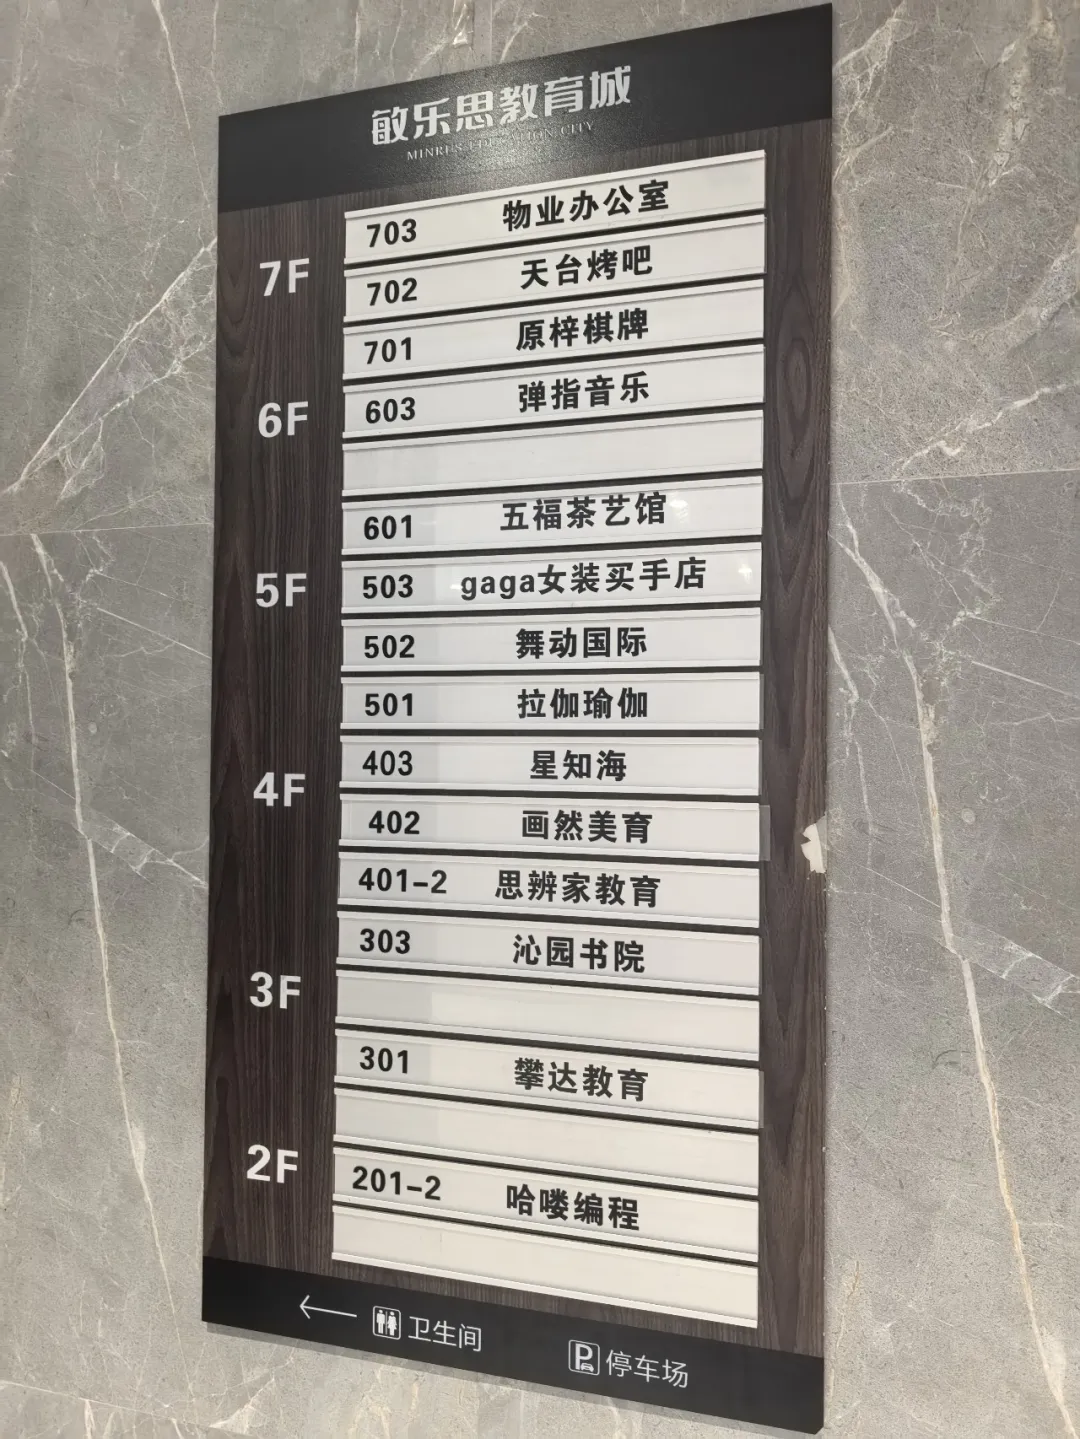 敏乐思教育城
MINRES EDUCATION CITY
703 物业办公室
7F
702 天台烤吧
701 原梓棋牌
6F
603 弹指音乐
601 五福茶艺馆
5F
503 gaga女装买手店
502 舞动国际
501 拉伽瑜伽
403 星知海
4F
402 画然美育
401-2 思辨家教育
303 沁园书院
3F
301 攀达教育
2F
201-2 哈喽编程
卫生间
P 停车场